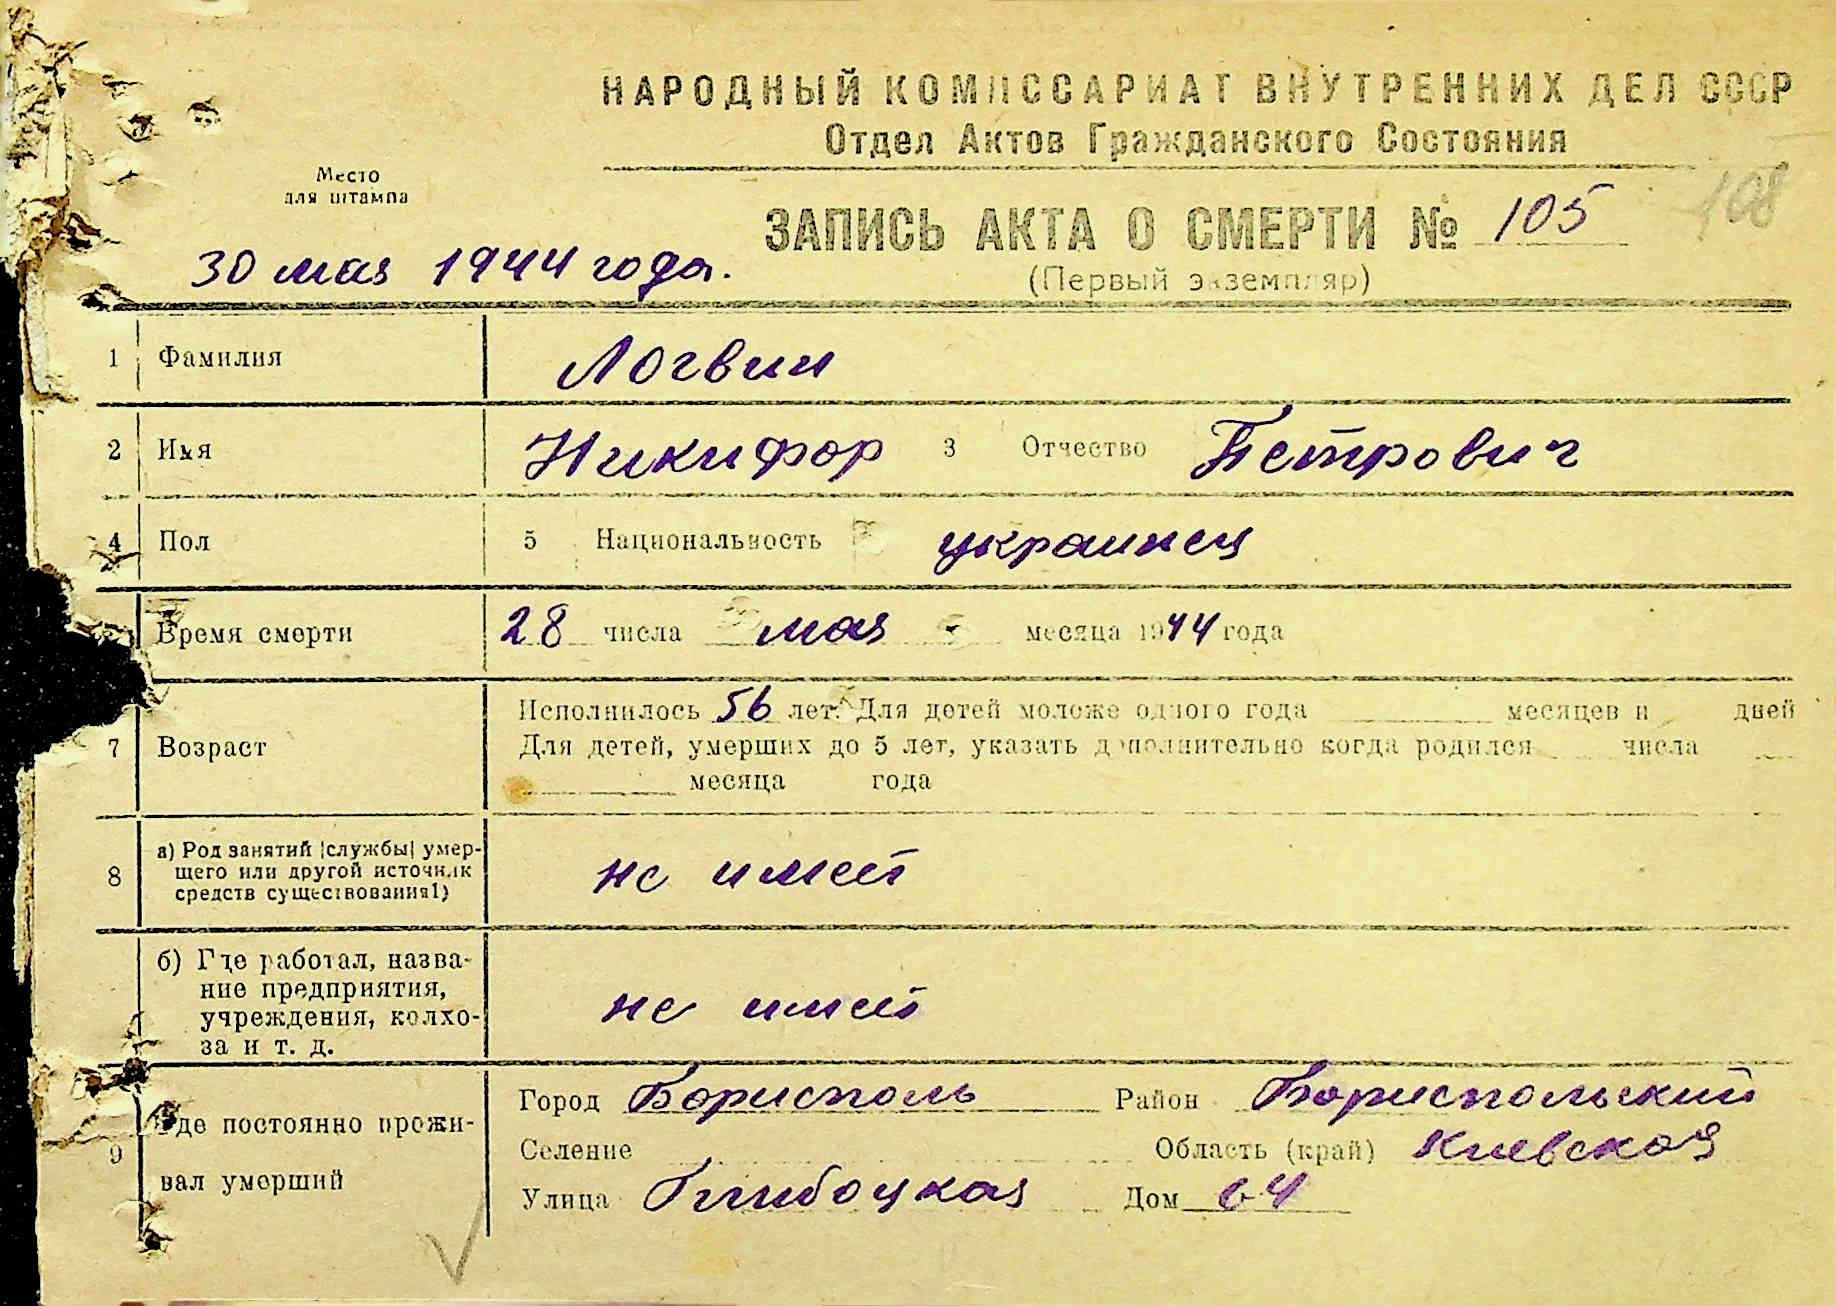 НАРОДНЫЙ КОМИССАРИАТ ВНУТРЕННИХ ДЕЛ СССР
Отдел Актов Гражданского Состояния
Место
для штампа
108
ЗАПИСЬ АКТА О СМЕРТИ № 105
30 мая 1944 года.
(Первый экземпляр)
1 Фамилия Логвин
2 Имя Никифор 3 Отчество Петрович
4 Пол 5 Национальность украинец
Время смерти 28 числа мая месяца 1944 года
Исполнилось 56 лет. Для детей моложе одного года месяцев и дней
7 Возраст Для детей, умерших до 5 лет, указать дополнительно когда родился числа
месяца года
8 а) Род занятий (службы) умер-
щего или другой источник
средств существования1)
не имеет
б) Где работал, назва-
ние предприятия,
учреждения, колхо-
за и т. д.
не имеет
9 Где постоянно прожи-
вал умерший
Город Борисполь Район Бориспольский
Селение Область (край) Киевская
Улица Глибоцкая Дом 64